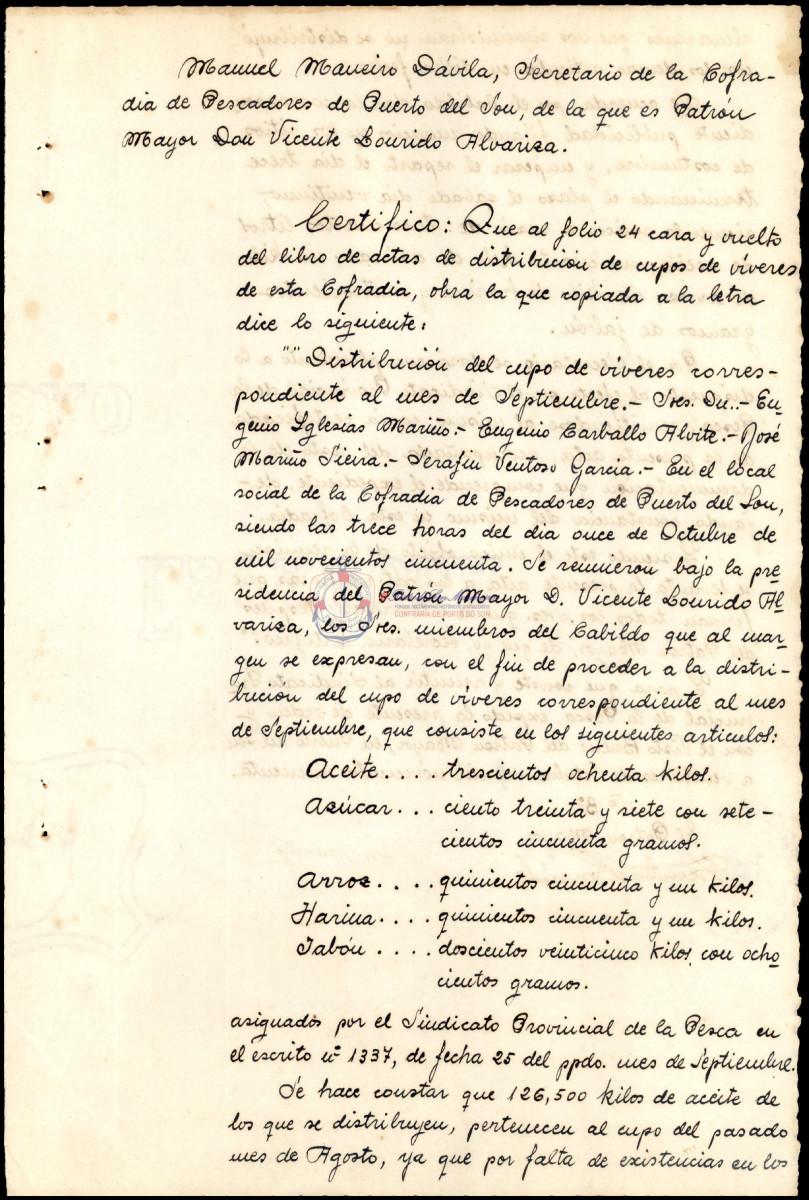 Manuel Maneiro Dávila, Secretario de la Cofra-
dia de Pescadores de Puerto del Son, de la que es Patrón
Mayor Don Vicente Lourido Alvariza.
Certifico: Que al folio 24 cara y vuelto
del libro de actas de distribución de cupos de víveres
de esta Cofradia, obra la que copiada a la letra
dice lo siguiente:
"" Distribución del cupo de víveres corres-
pondiente al mes de Septiembre.- Sres. Dn..- Eu-
genio Yglesias Mariño.- Eugenio Carballo Alvite.- José
Mariño Sieira.- Serafin Ventoso Garcia.- En el local
social de la Cofradia de Pescadores de Puerto del Son,
siendo las trece horas del dia once de Octubre de
mil novecientos cincuenta. Se reunieron bajo la pre-
sidencia del Patrón Mayor D. Vicente Lourido Al-
variza, los Sres. miembros del Cabildo que al mar-
gen se expresan, con el fin de proceder a la distri-
bución del cupo de víveres correspondiente al mes
de Septiembre, que consiste en los siguientes articulos:
Aceite.... trescientos ochenta kilos.
Azúcar... ciento treinta y siete con sete-
cientos cincuenta gramos.
Arroz.... quinientos cincuenta y un kilos.
Harina.... quinientos cincuenta y un kilos.
Jabón.... doscientos veinticinco kilos con ocho
cientos gramos.
asignados por el Sindicato Provincial de la Pesca en
el escrito nº 1337, de fecha 25 del ppdo. mes de Septiembre.
Se hace constar que 126,500 kilos de aceite de
los que se distribuyen, pertenecen al cupo del pasado
mes de Agosto, ya que por falta de existencias en los
CONFRARIA DE PORTO DO SON